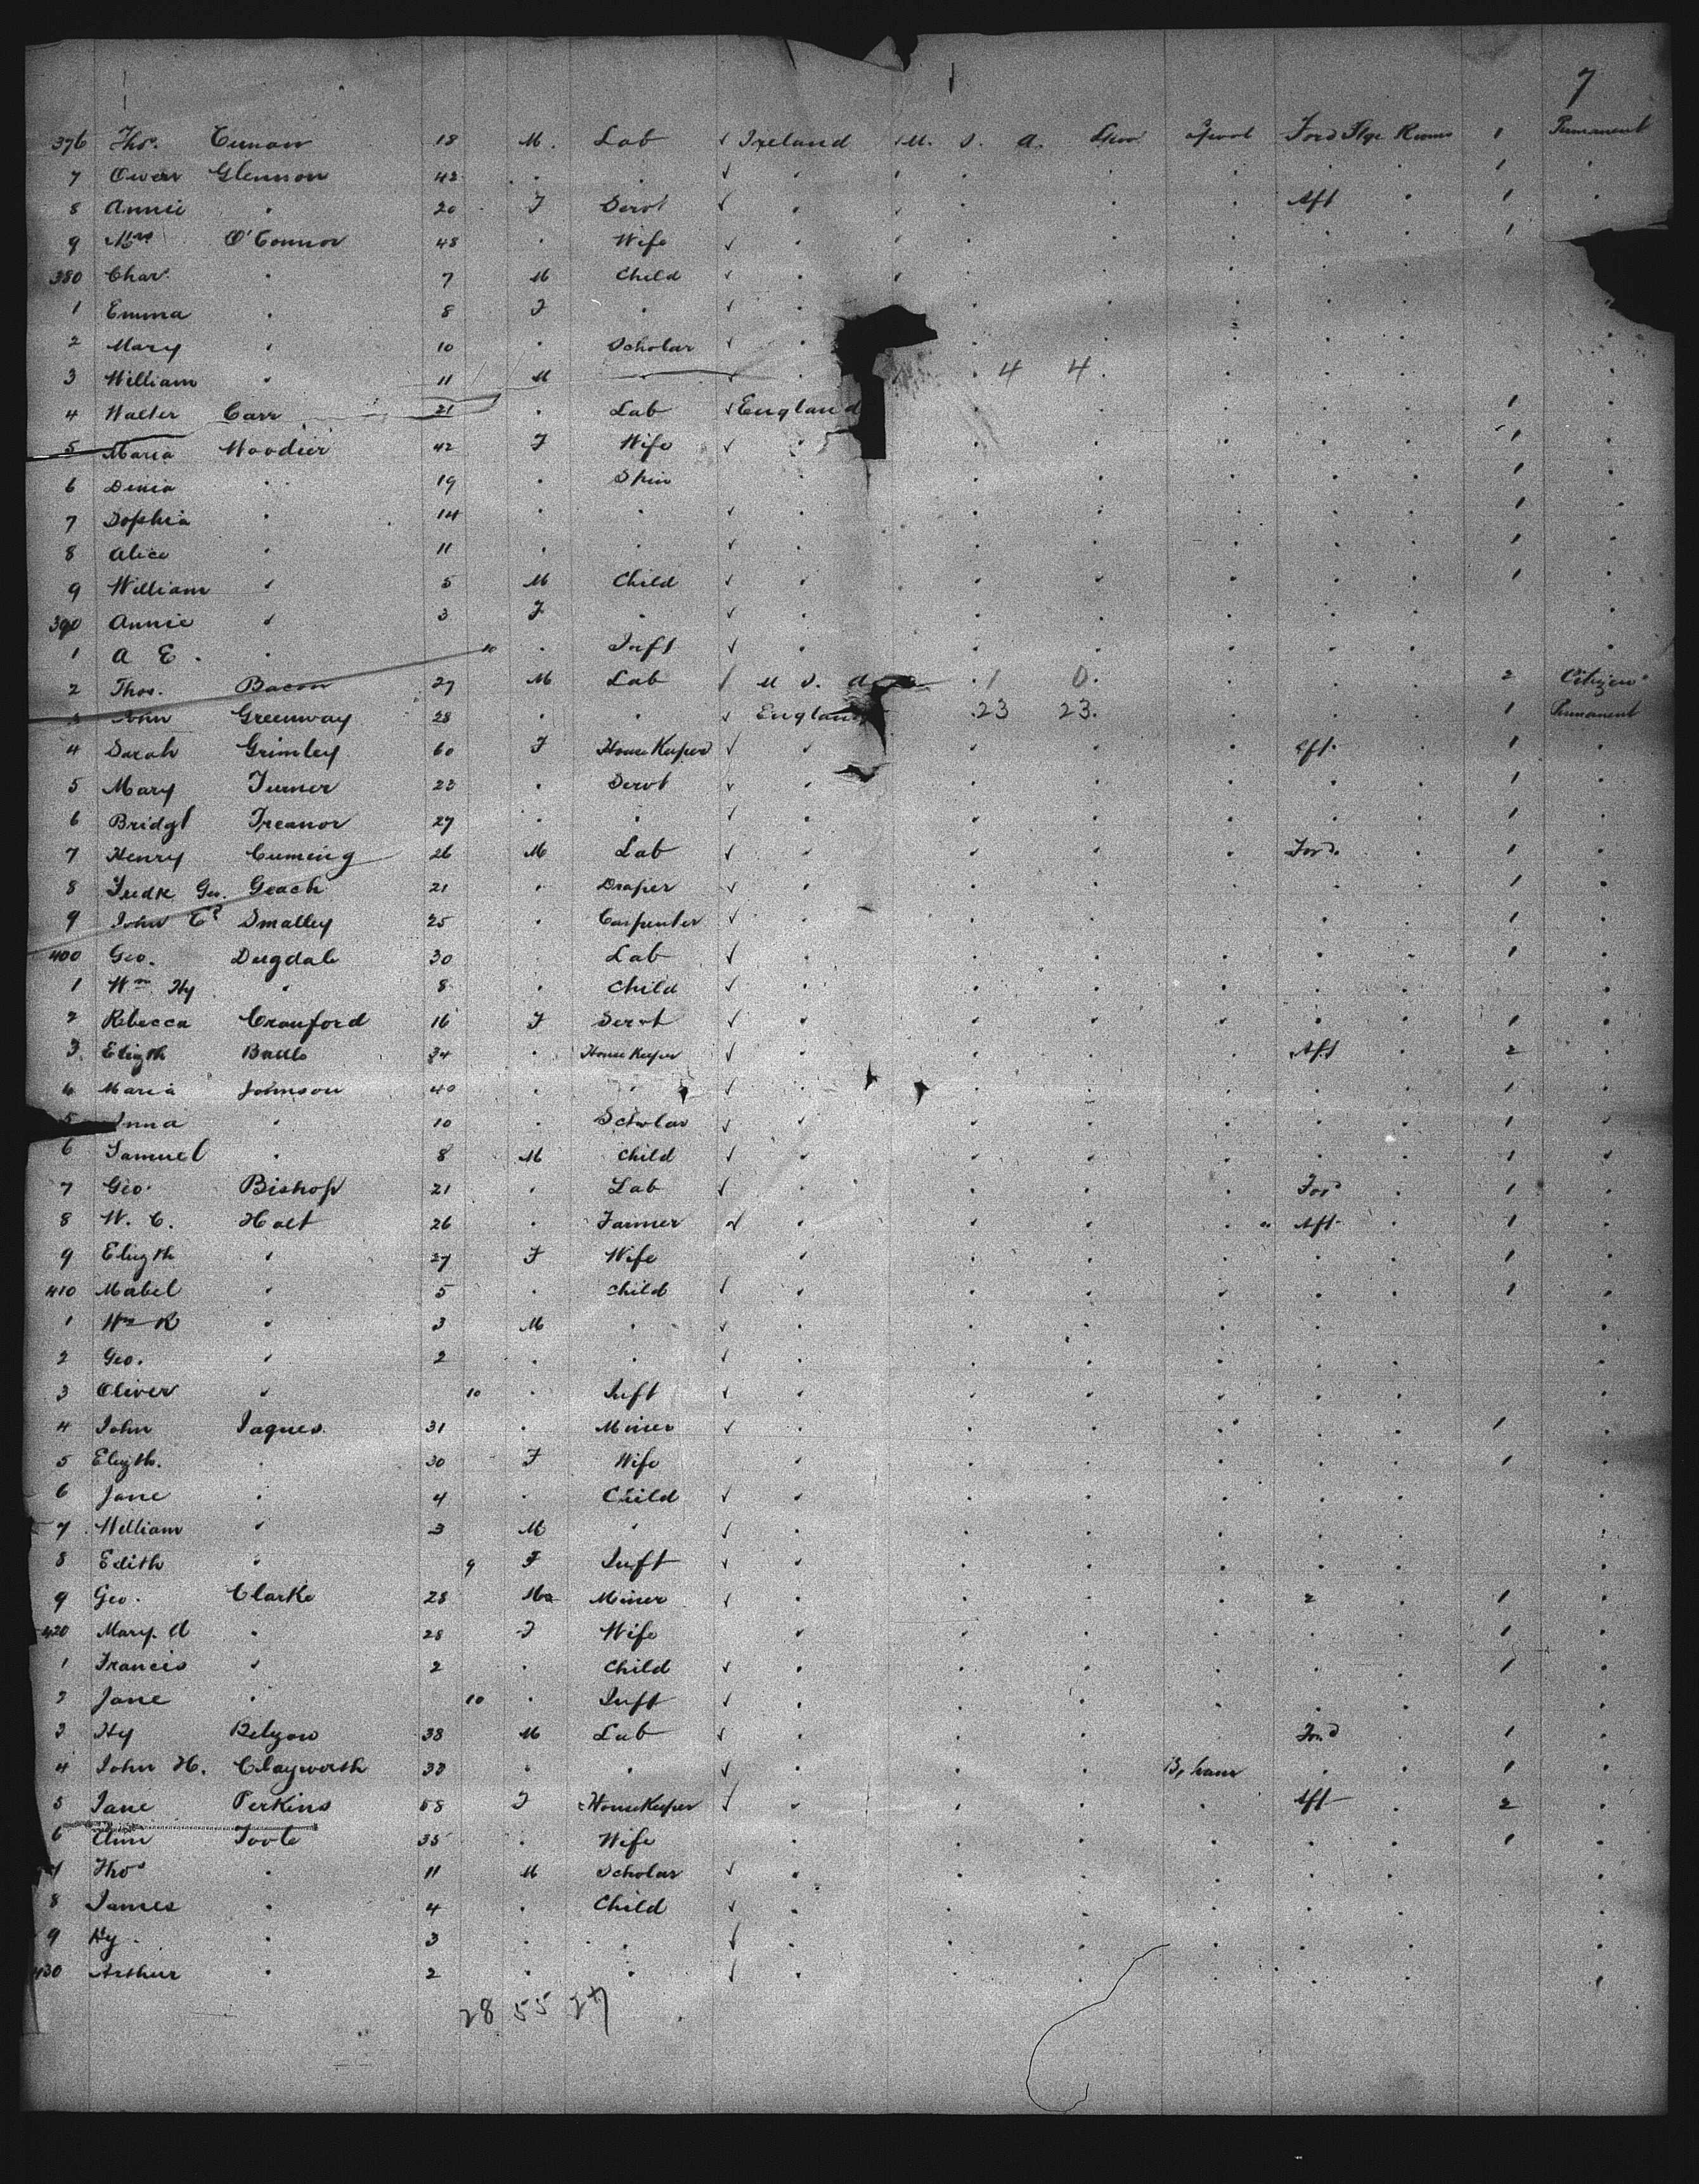 7
376 Thos. 18 M. Lab Ireland U. S. A. L'pool Ford Stge Rooms 1 Permanent
7 Owen Glennon 42 " " " " " " " " 1 "
8 Annie " 20 F Servt " " " " Aft " 1 "
9 Mrs O'Connor 48 " Wife " " " " " " 1
380 Chas. " 7 M Child " " " " " "
1 Emma " 8 F " " " " " " " "
2 Mary " 10 " Scholar " " " " " " "
3 William " 11 M " " " 4 4 " " " "
4 Walter Carr 21 " Lab England " " " " " 1 "
5 Maria Woodier 42 F Wife " " " " " " 1 "
6 19 " Spin " " " " " " 1 "
7 Sophia " 14 " " " " " " " " 1 "
8 Alice " 11 " " " " " " " " 1 "
9 William " 5 M Child " " " " " " 1 "
390 Annie " 3 F " " " " " " " "
1 A E. " 10 " Inft " " " " " " "
2 Thos. Bacon 27 M Lab U S. A 1 0 " " " 2 Citizen
Greenway 28 " " England 23 23 " " " 1 Permanent
4 Sarah Grimley 60 F House Keeper " " " " Aft. " 1 "
5 Mary Turner 22 " Servt " " " " " " 1 "
6 Bridgt Treanor 27 " " " " " " " " 1 "
7 Henry Cuming 26 M Lab " " " " Ford. " 1 "
8 Fredk Geo. Geach 21 " Draper " " " " " " 1 "
9 John Ed Smalley 25 " Carpenter " " " " " " 1 "
400 Geo. Dugdale 30 " Lab " " " " " " 1 "
1 Wm Hy " 8 " Child " " " " " " "
2 Rebecca Cranford 16 F Servt " " " " " " 1 "
3 Elizth 34 " House Keeper " " " " Aft " 2 "
4 Maria Johnson 40 " " " " " " " " 1 "
5 Anna " 10 " Scholar " " " " " " 1 "
6 Samuel " 8 M Child " " " " " " 1 "
7 Geo. Bishop 21 " Lab " " " " Ford " 1 "
8 W. C. Holt 26 " Farmer " " " " Aft " 1 "
9 Elizth " 27 F Wife " " " " " " 1 "
410 Mabel " 5 " Child " " " " " " 1 "
1 Wm R " 3 M " " " " " " "
2 Geo. " 2 " " " " " " " " "
3 Oliver " 10 " Inft " " " " " " "
4 John Jaques 31 " Miner " " " " " " 1 "
5 Elizth. " 30 F Wife " " " " " " 1 "
6 Jane " 4 " Child " " " " " " "
7 William " 3 M " " " " " " " "
8 Edith " 9 F Inft " " " " " " "
9 Geo. Clarke 28 Ma Miner " " " " 2 " 1 "
420 Mary A " 28 F Wife " " " " " " 1 "
1 Francis " 2 " Child " " " " " " 1 "
2 Jane " 10 " Inft " " " " " " "
3 Hy 38 M Lab " " " " Ford " 1 "
4 John H. Clayworth 33 " " " " " " " 1 "
5 Jane Perkins 58 F HouseKeeper " " " " Aft " 2 "
6 Ann Toole 35 " Wife " " " " " " 1 "
7 Thos " 11 M Scholar " " " " " " "
8 James " 4 " Child " " " " " " "
9 Hy. " 3 " " " " " " " " "
430 Arthur " 2 " " " " " " " "
28 55 27